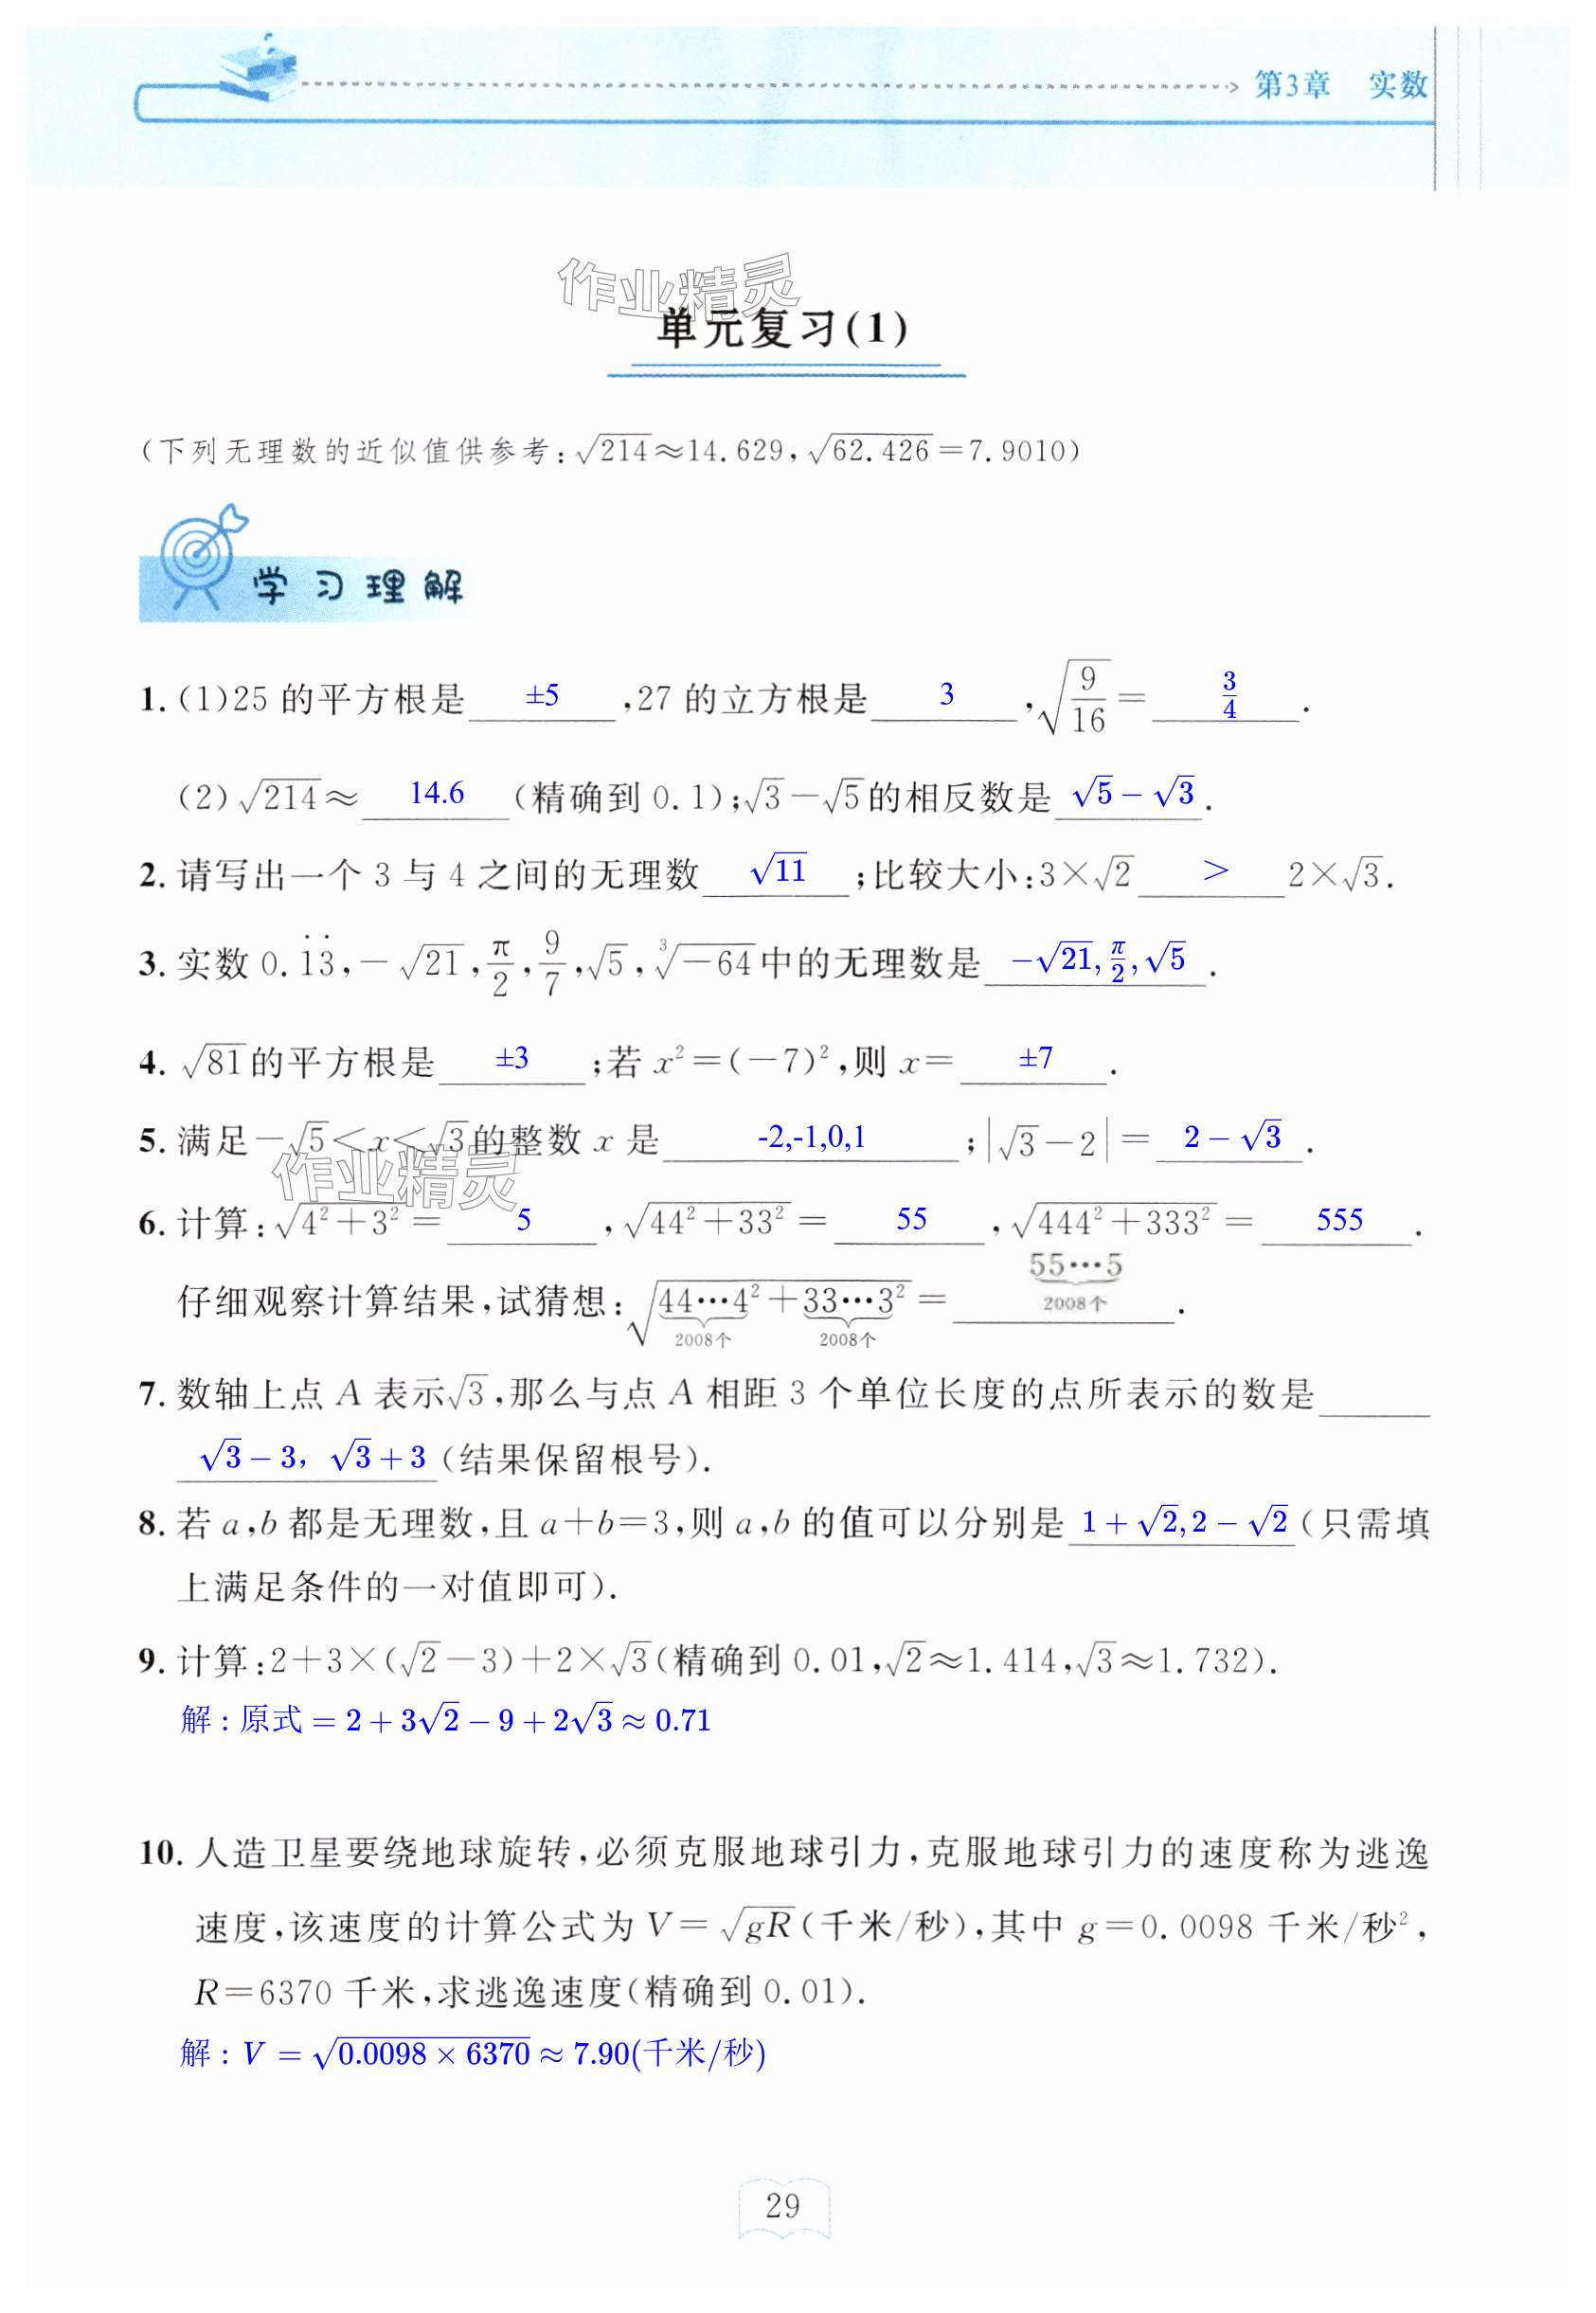 第3章 实数
作业精灵
单元复习(1)
(下列无理数的近似值供参考:√214≈14.629,√62.426=7.9010)
学习理解
1.(1)25的平方根是 ±5 ,27的立方根是 3 ,√(9/16)= 3/4 .
(2)√214≈ 14.6 (精确到0.1);√3-√5的相反数是 √5-√3 .
2.请写出一个3与4之间的无理数 √11 ;比较大小:3×√2 > 2×√3.
3.实数0.1̇3̇,-√21,π/2,9/7,√5,∛-64中的无理数是 -√21,π/2,√5 .
4.√81的平方根是 ±3 ;若x²=(-7)²,则x= ±7 .
5.满足-√5<x<√3的整数x是 -2,-1,0,1 ;|√3-2|= 2-√3 .
作业精灵
6.计算:√(4²+3²)= 5 ,√(44²+33²)= 55 ,√(444²+333²)= 555 .
仔细观察计算结果,试猜想:√(44…4²+33…3²)= 55…5 .
2008个 2008个 2008个
7.数轴上点A表示√3,那么与点A相距3个单位长度的点所表示的数是
√3-3, √3+3 (结果保留根号).
8.若a,b都是无理数,且a+b=3,则a,b的值可以分别是 1+√2,2-√2 (只需填
上满足条件的一对值即可).
9.计算:2+3×(√2-3)+2×√3(精确到0.01,√2≈1.414,√3≈1.732).
解:原式=2+3√2-9+2√3≈0.71
10.人造卫星要绕地球旋转,必须克服地球引力,克服地球引力的速度称为逃逸
速度,该速度的计算公式为V=√gR(千米/秒),其中g=0.0098千米/秒²,
R=6370千米,求逃逸速度(精确到0.01).
解:V=√(0.0098×6370)≈7.90(千米/秒)
29